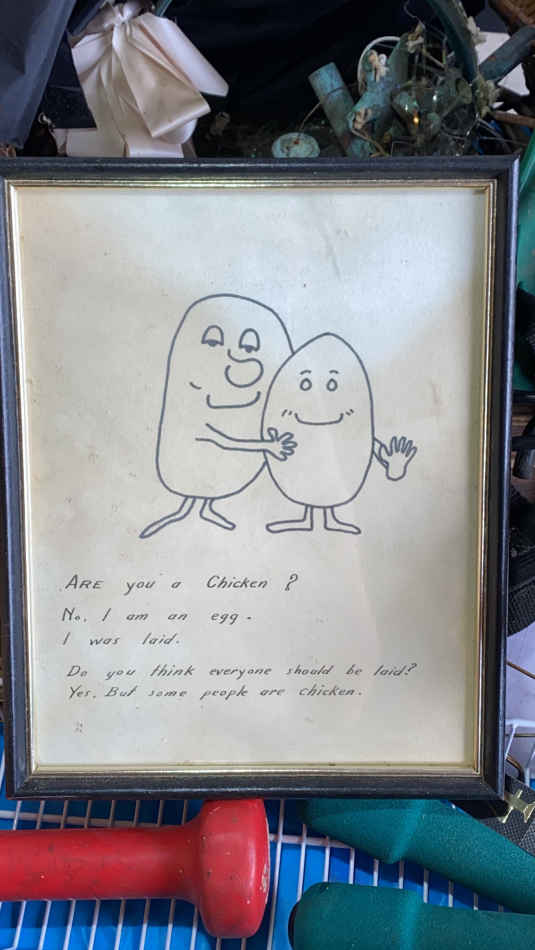 ARE you a Chicken ?
No, I am an egg.
I was laid.
Do you think everyone should be laid?
Yes, But some people are chicken.